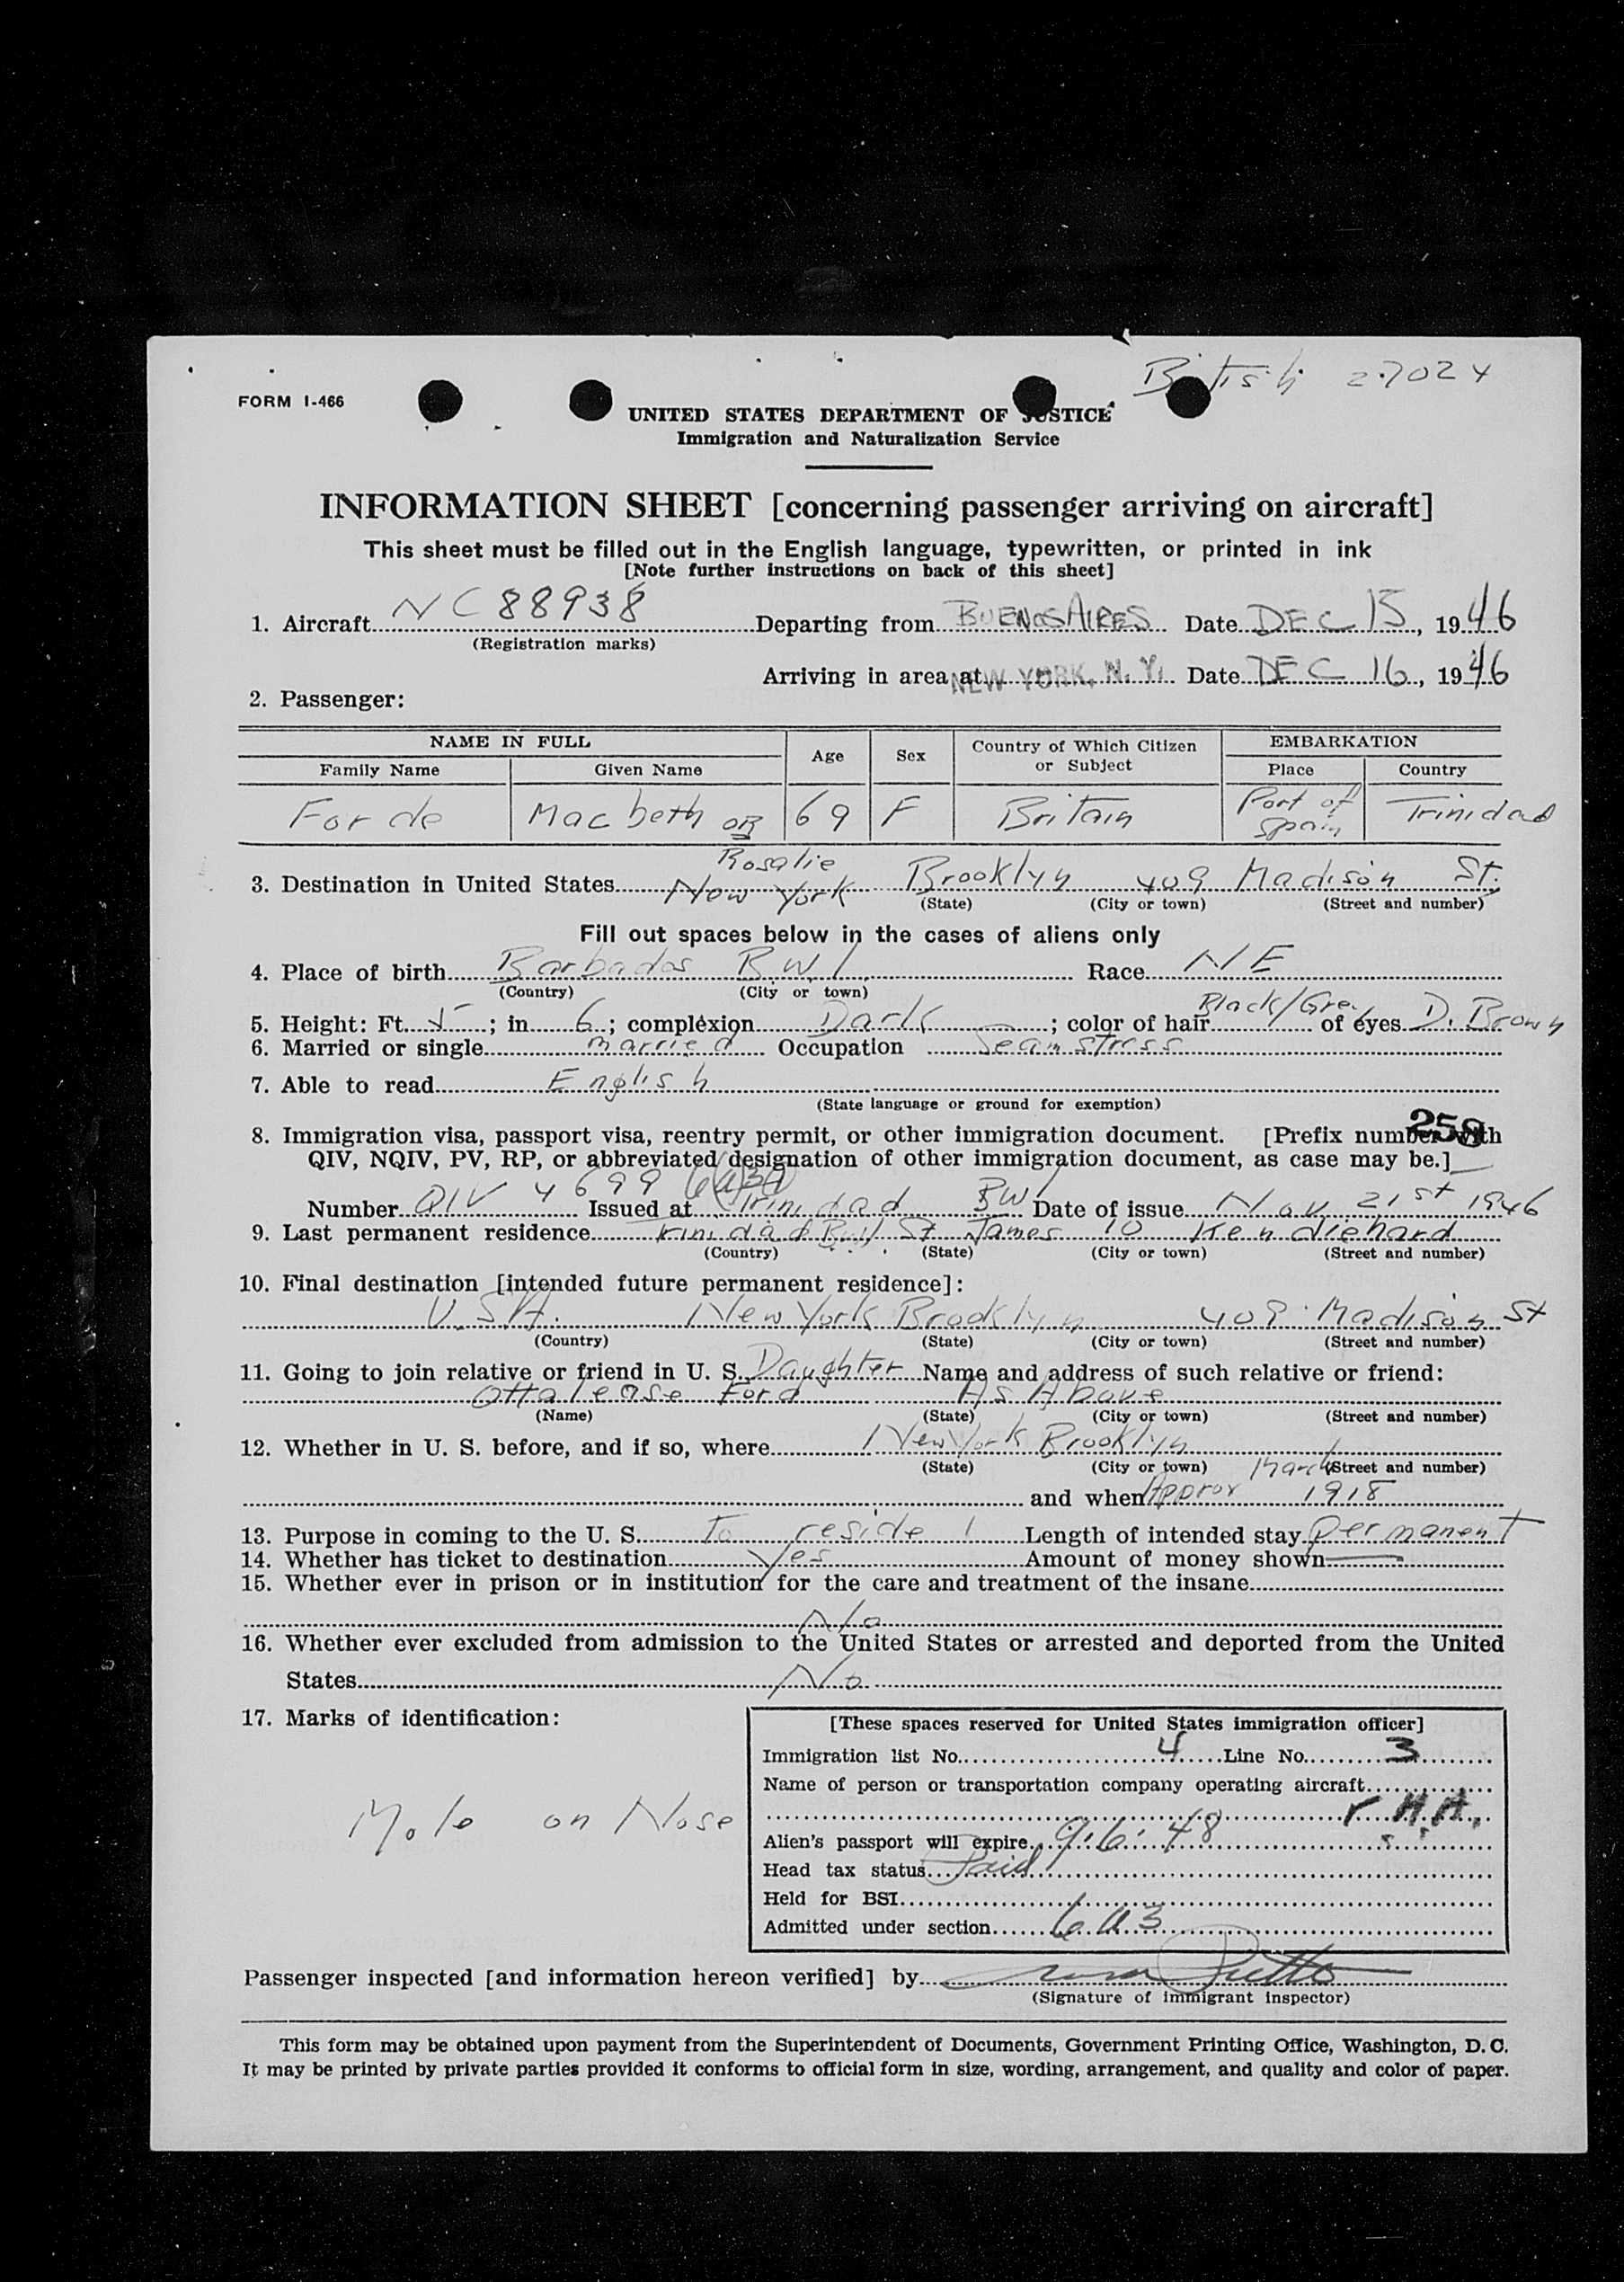 British 27024
FORM I-466
UNITED STATES DEPARTMENT OF JUSTICE
Immigration and Naturalization Service
INFORMATION SHEET [concerning passenger arriving on aircraft]
This sheet must be filled out in the English language, typewritten, or printed in ink
[Note further instructions on back of this sheet]
1. Aircraft NC88938 Departing from BUENOS AIRES Date DEC 15, 1946
(Registration marks)
Arriving in area at NEW YORK, N. Y. Date DEC 16, 1946
2. Passenger:
NAME IN FULL Age Sex Country of Which Citizen or Subject EMBARKATION
Family Name Given Name Place Country
Forde Macbeth OR 69 F Britain Port of Spain Trinidad
Rosalie
3. Destination in United States New York Brooklyn 409 Madison St.
(State) (City or town) (Street and number)
Fill out spaces below in the cases of aliens only
4. Place of birth Barbados B.W.I. Race NE
(Country) (City or town)
5. Height: Ft. 5; in 6; complexion Dark; color of hair Black/Grey of eyes D. Brown
6. Married or single married Occupation Seamstress
7. Able to read English
(State language or ground for exemption)
258
8. Immigration visa, passport visa, reentry permit, or other immigration document. [Prefix number with
QIV, NQIV, PV, RP, or abbreviated designation of other immigration document, as case may be.]
Number QIV 4699 Issued at Trinidad BWI Date of issue Nov 21st 1946
9. Last permanent residence Trinidad B.W.I St James 10
(Country) (State) (City or town) (Street and number)
10. Final destination [intended future permanent residence]:
U.S.A. New York Brooklyn 409 Madison St
(Country) (State) (City or town) (Street and number)
11. Going to join relative or friend in U. S. Daughter Name and address of such relative or friend:
Ottalease Ford As Above
(Name) (State) (City or town) (Street and number)
12. Whether in U. S. before, and if so, where New York Brooklyn
(State) (City or town) (Street and number)
and when Approx March 1918
13. Purpose in coming to the U. S. To reside Length of intended stay permanent
14. Whether has ticket to destination Yes Amount of money shown —
15. Whether ever in prison or in institution for the care and treatment of the insane
No
16. Whether ever excluded from admission to the United States or arrested and deported from the United
States No
17. Marks of identification:
Mole on Nose
[These spaces reserved for United States immigration officer]
Immigration list No. 4 Line No. 3
Name of person or transportation company operating aircraft
Alien's passport will expire 9.6.48
Head tax status Paid
Held for BSI
Admitted under section 6A3
Passenger inspected [and information hereon verified] by
(Signature of immigrant inspector)
This form may be obtained upon payment from the Superintendent of Documents, Government Printing Office, Washington, D. C.
It may be printed by private parties provided it conforms to official form in size, wording, arrangement, and quality and color of paper.